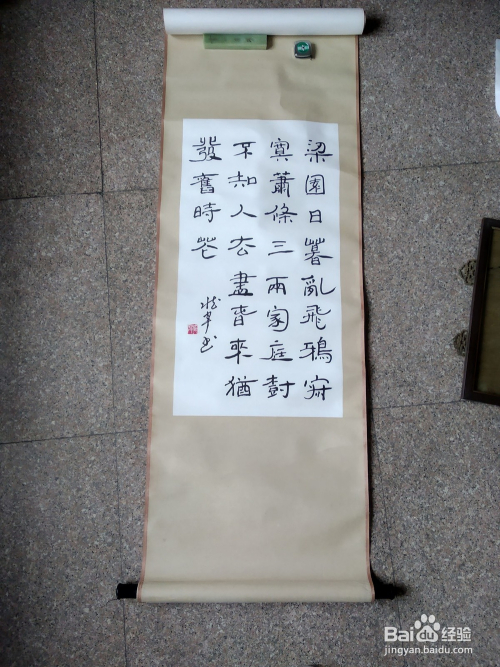 梁園日暮亂飛鴉寂
寞蕭條三兩家庭樹
不知人去盡春來猶
發舊時花
书
Bai du 经验
jingyan.baidu.com